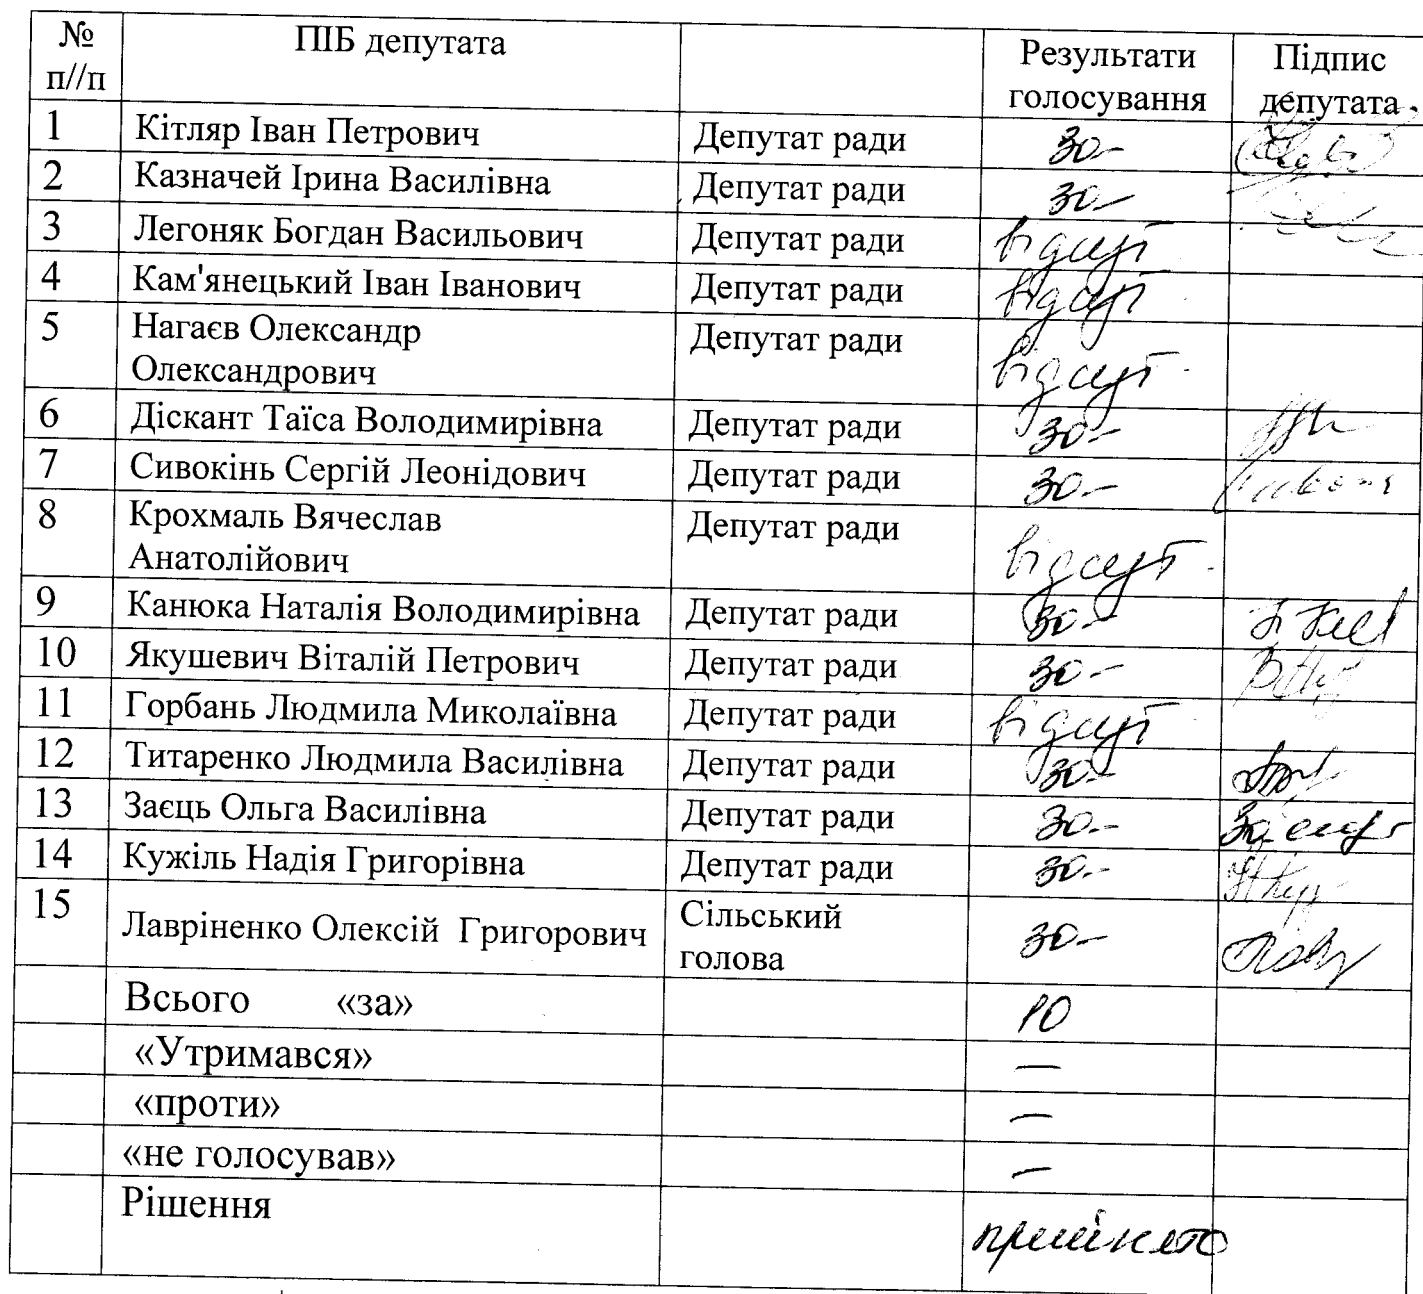 № п//п ПІБ депутата Результати голосування Підпис депутата
1 Кітляр Іван Петрович Депутат ради за-
2 Казначей Ірина Василівна Депутат ради за-
3 Легоняк Богдан Васильович Депутат ради відсут
4 Кам'янецький Іван Іванович Депутат ради відсут
5 Нагаєв Олександр Депутат ради відсут
Олександрович
6 Діскант Таїса Володимирівна Депутат ради за-
7 Сивокінь Сергій Леонідович Депутат ради за-
8 Крохмаль Вячеслав Депутат ради відсут
Анатолійович
9 Канюка Наталія Володимирівна Депутат ради за-
10 Якушевич Віталій Петрович Депутат ради за-
11 Горбань Людмила Миколаївна Депутат ради відсут
12 Титаренко Людмила Василівна Депутат ради за-
13 Заєць Ольга Василівна Депутат ради за-
14 Кужіль Надія Григорівна Депутат ради за-
15 Лавріненко Олексій Григорович Сільський за-
голова
Всього «за» 10
«Утримався» —
«проти» —
«не голосував» —
Рішення прийнято